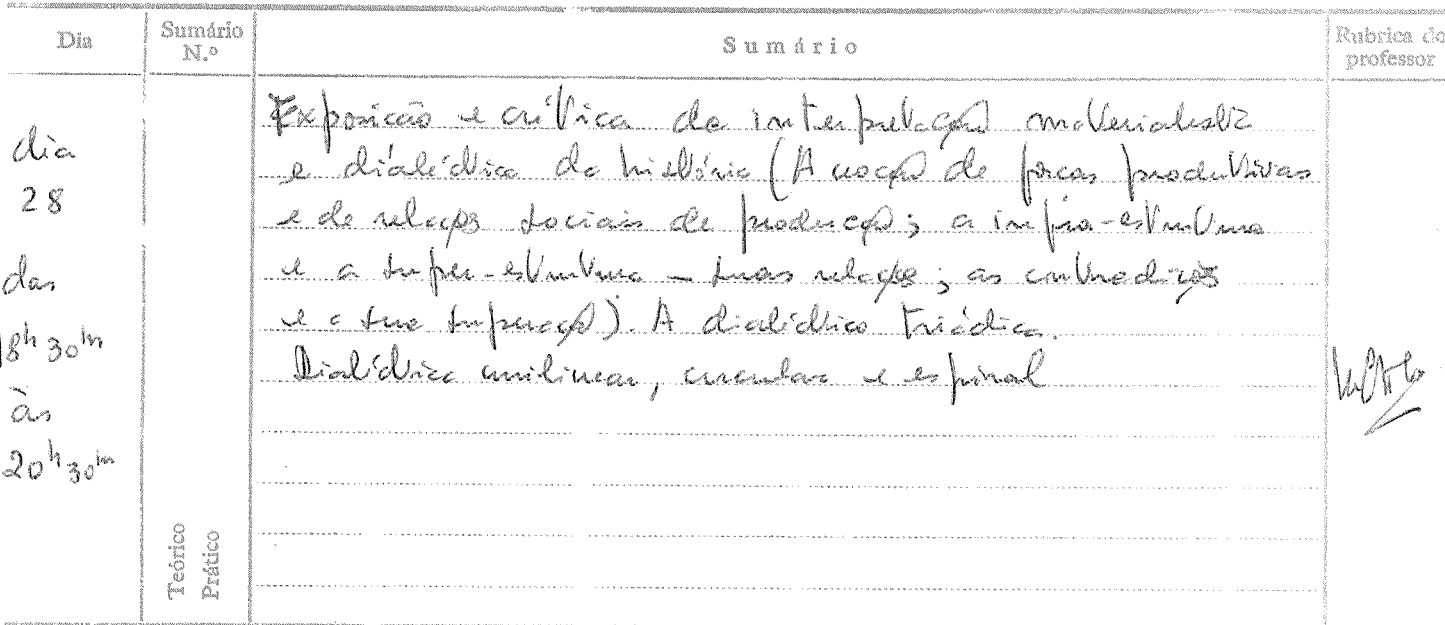 Dia
Sumário N.º
Sumário
Rubrica do professor
dia
28
das
18h 30m
às
20h 30m
Exposição e crítica da interpretação materialista
e dialéctica da história (A noção de forças produtivas
e de relações sociais de produção; a infra-estrutura
e a super-estrutura — suas relações; as contradições
e a sua superação). A dialéctica triádica.
Dialéctica unilinear, circular e espiral
Teórico
Prático